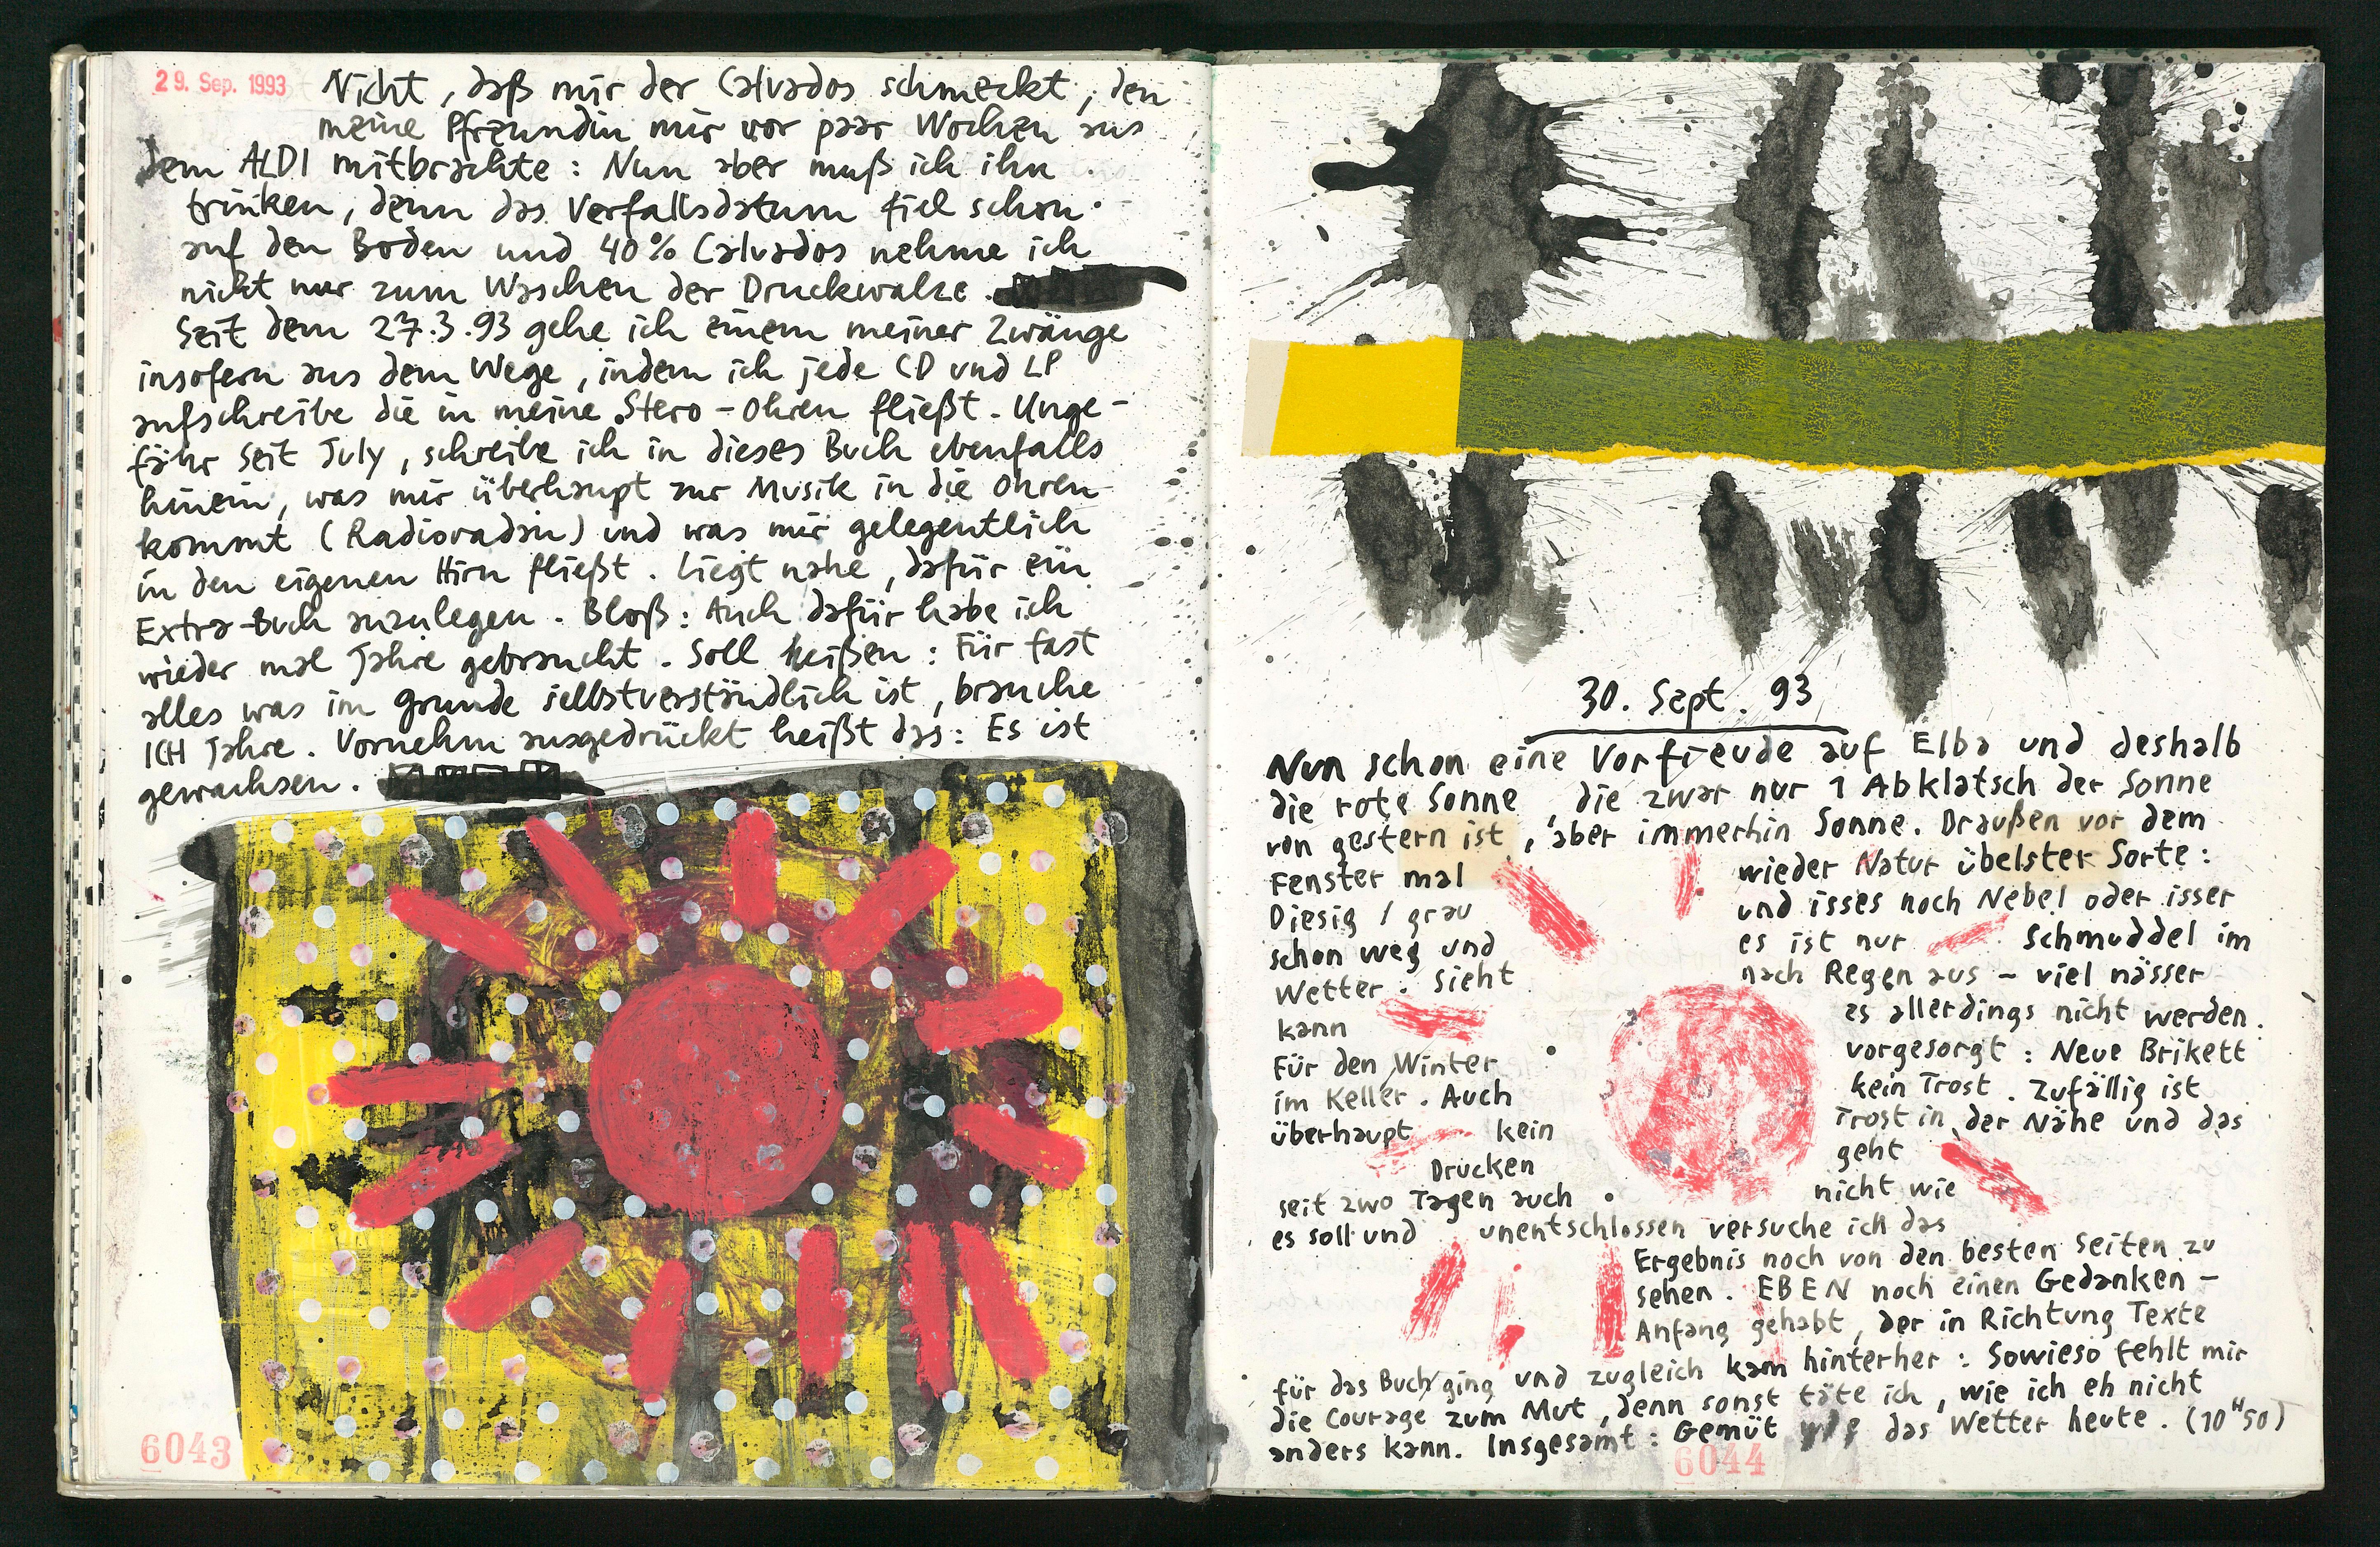 29. Sep. 1993
Nicht, daß mir der Calvados schmeckt, den
meine Pfreundin mir vor paar Wochen aus
dem ALDI mitbrachte: Nun aber muß ich ihn
trinken, denn das Verfallsdatum fiel schon
auf den Boden und 40% Calvados nehme ich
nicht nur zum Waschen der Druckwalze.
Seit dem 27.3.93 gehe ich einem meiner Zwänge
insofern aus dem Wege, indem ich jede CD und LP
aufschreibe die in meine Stero-Ohren fließt. Unge-
fähr seit July, schreibe ich in dieses Buch ebenfalls
hinein, was mir überhaupt zur Musik in die Ohren
kommt (Radioradsu) und was mir gelegentlich
in den eigenen Hirn fließt. Liegt nahe, dafür ein
Extra-Buch anzulegen. Bloß: Auch dafür habe ich
wieder mal Jahre gebraucht. Soll heißen: Für fast
alles was im Grunde selbstverständlich ist, brauche
ICH Jahre. Vornehm ausgedrückt heißt das: Es ist
gewachsen.
6043
30. Sept. 93
Nun schon eine Vorfreude auf Elba und deshalb
die rote Sonne, die zwar nur 1 Abklatsch der Sonne
von gestern ist, aber immerhin Sonne. Draußen vor dem
Fenster mal wieder Natur übelster Sorte:
Diesig / grau und isses noch Nebel oder isser
schon weg und es ist nur Schmuddel im
Wetter. Sieht nach Regen aus – viel nässer
kann es allerdings nicht werden.
Für den Winter vorgesorgt: Neue Brikett
im Keller. Auch kein Trost. Zufällig ist
überhaupt kein Trost in der Nähe und das
Drucken geht
seit zwo Tagen auch nicht wie
es soll und unentschlossen versuche ich das
Ergebnis noch von den besten Seiten zu
sehen. EBEN noch einen Gedanken-
Anfang gehabt, der in Richtung Texte
für das Buch ging und zugleich kam hinterher: Sowieso fehlt mir
die Courage zum Mut, denn sonst täte ich, wie ich eh nicht
anders kann. Insgesamt: Gemüt wie das Wetter heute. (10H50)
6044